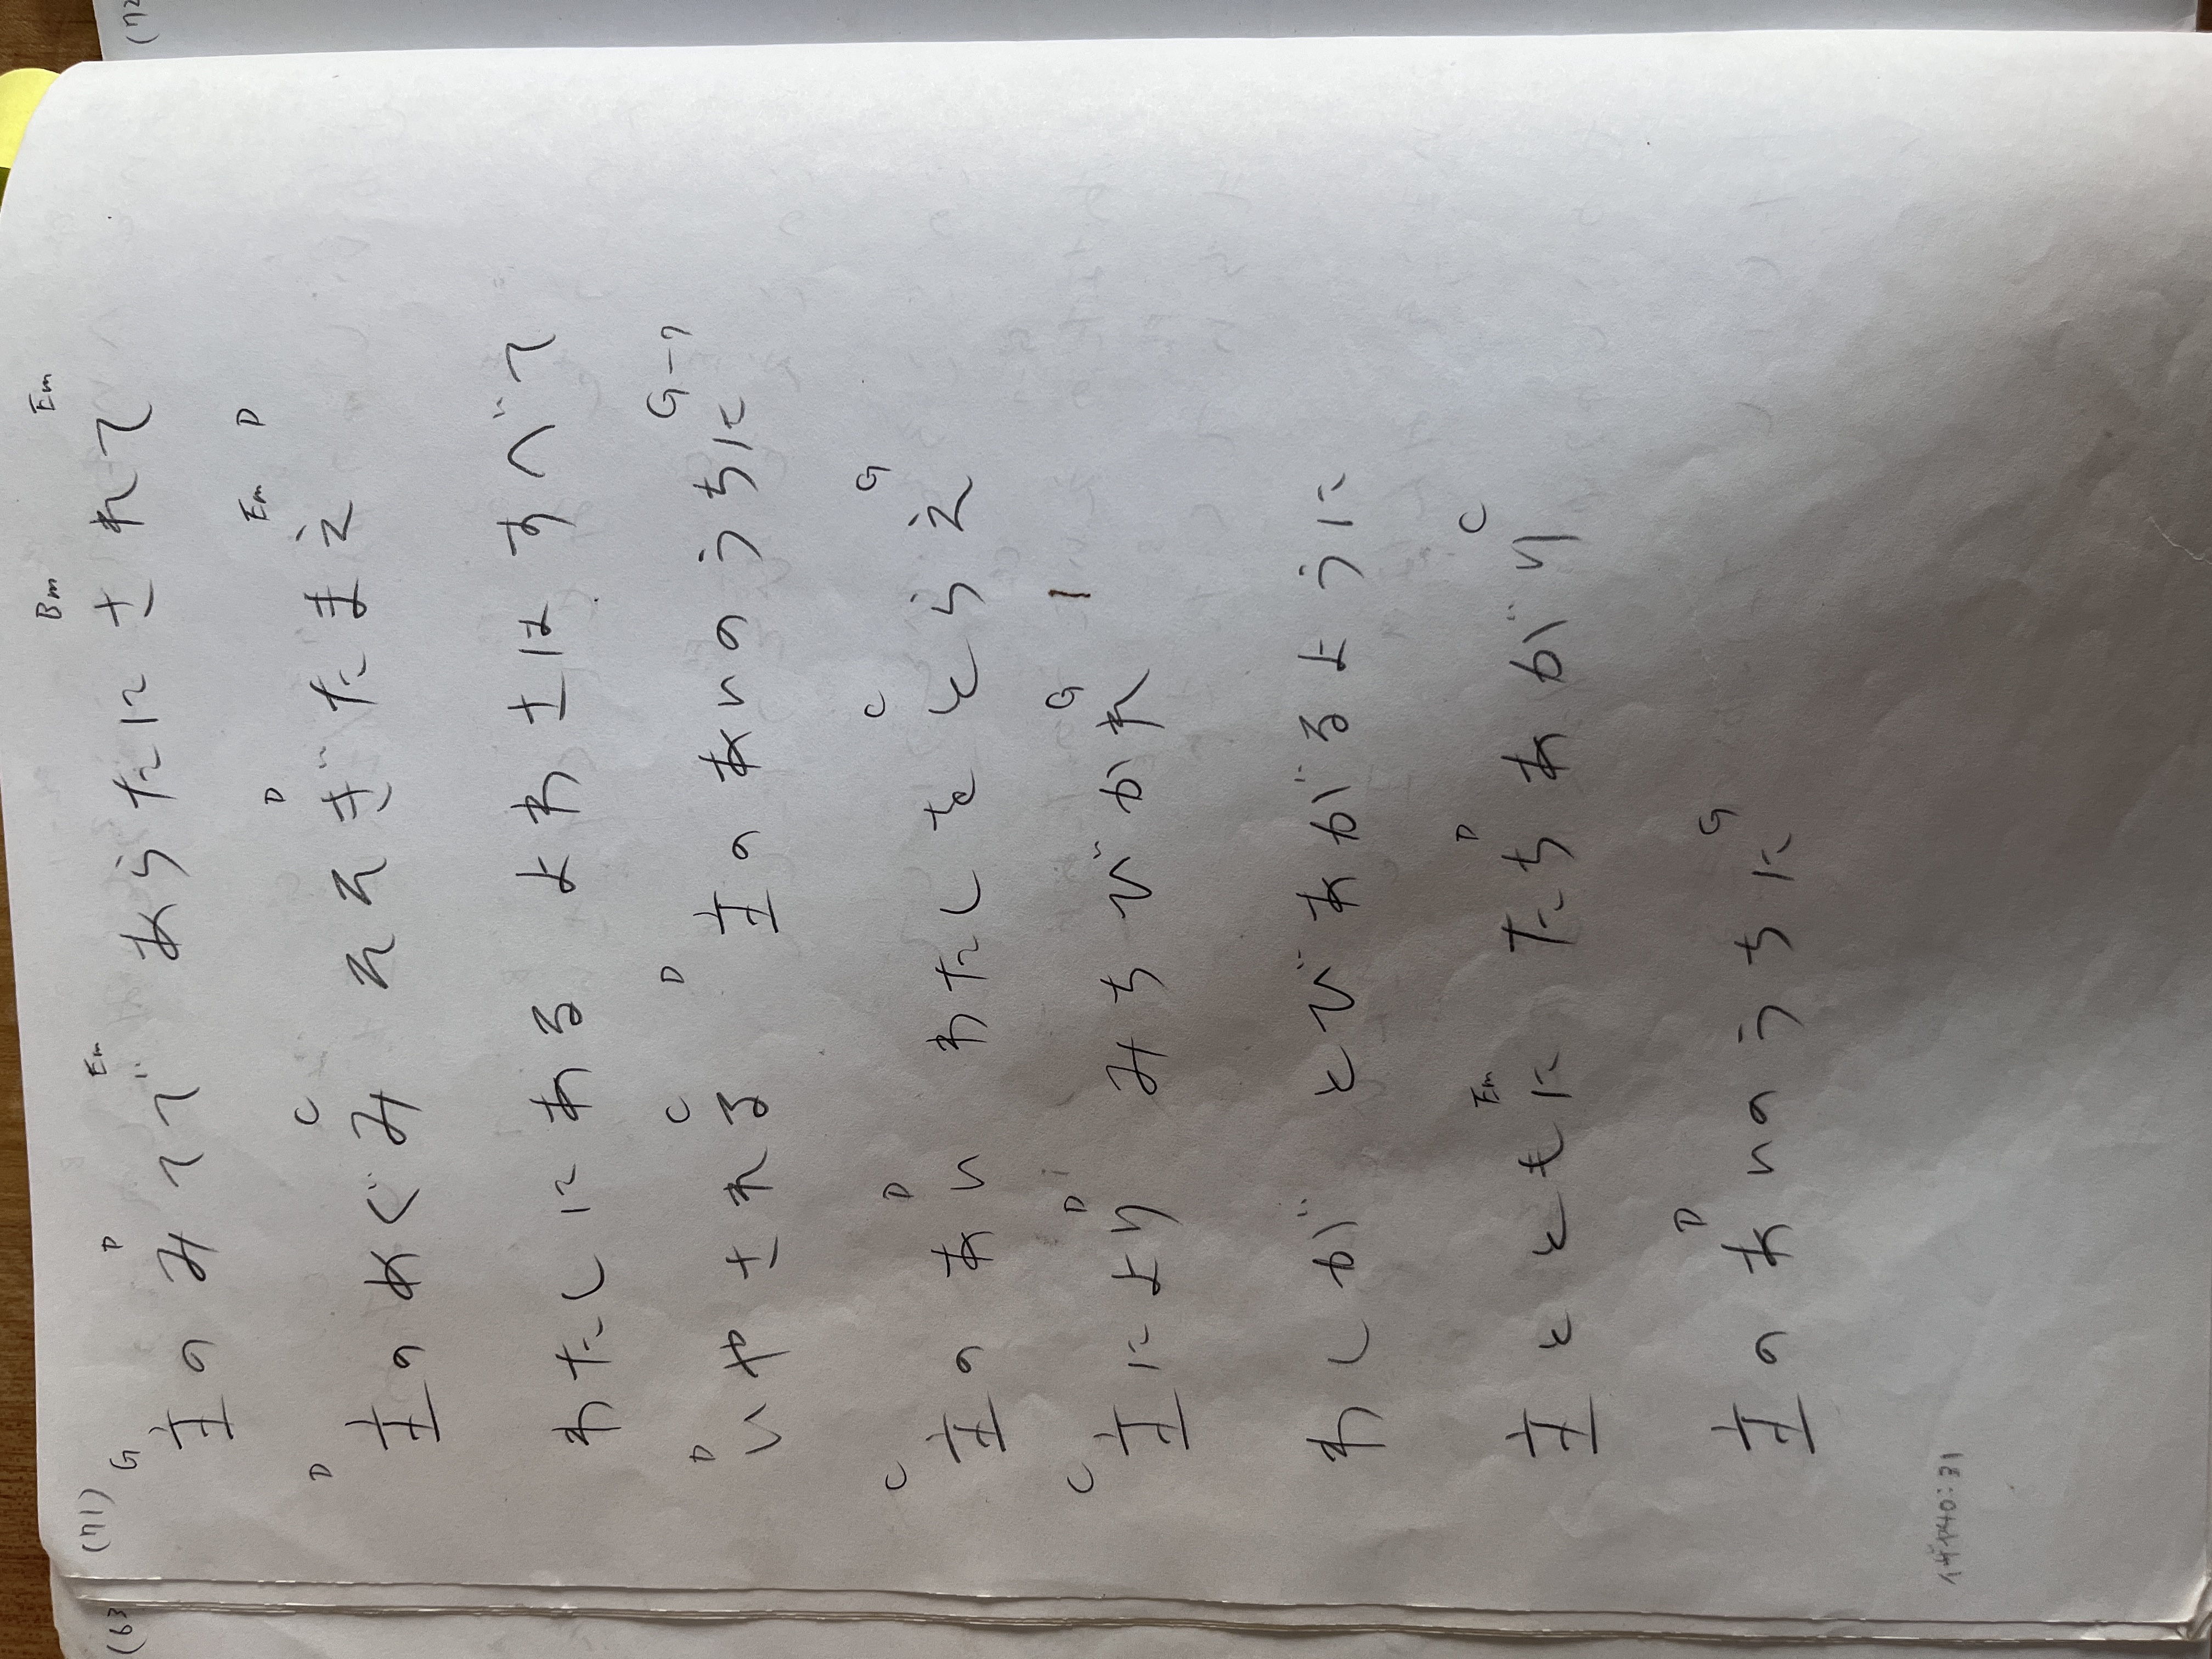 (72
(71)
G D Em Bm Em
主のみてで あらたにされて
D C D Em D
主のめぐみ そそぎたまえ
わたしにある よわさは すべて
D C D G-7
いやされる 主のあいのうちに
C D C G
主の あい わたしをとらえ
C D G
主により みちびかれ
わしが とびあがるように
Em D C
主とともに たちあがり
D G
主のあいのうちに
イザヤ40:31
(63